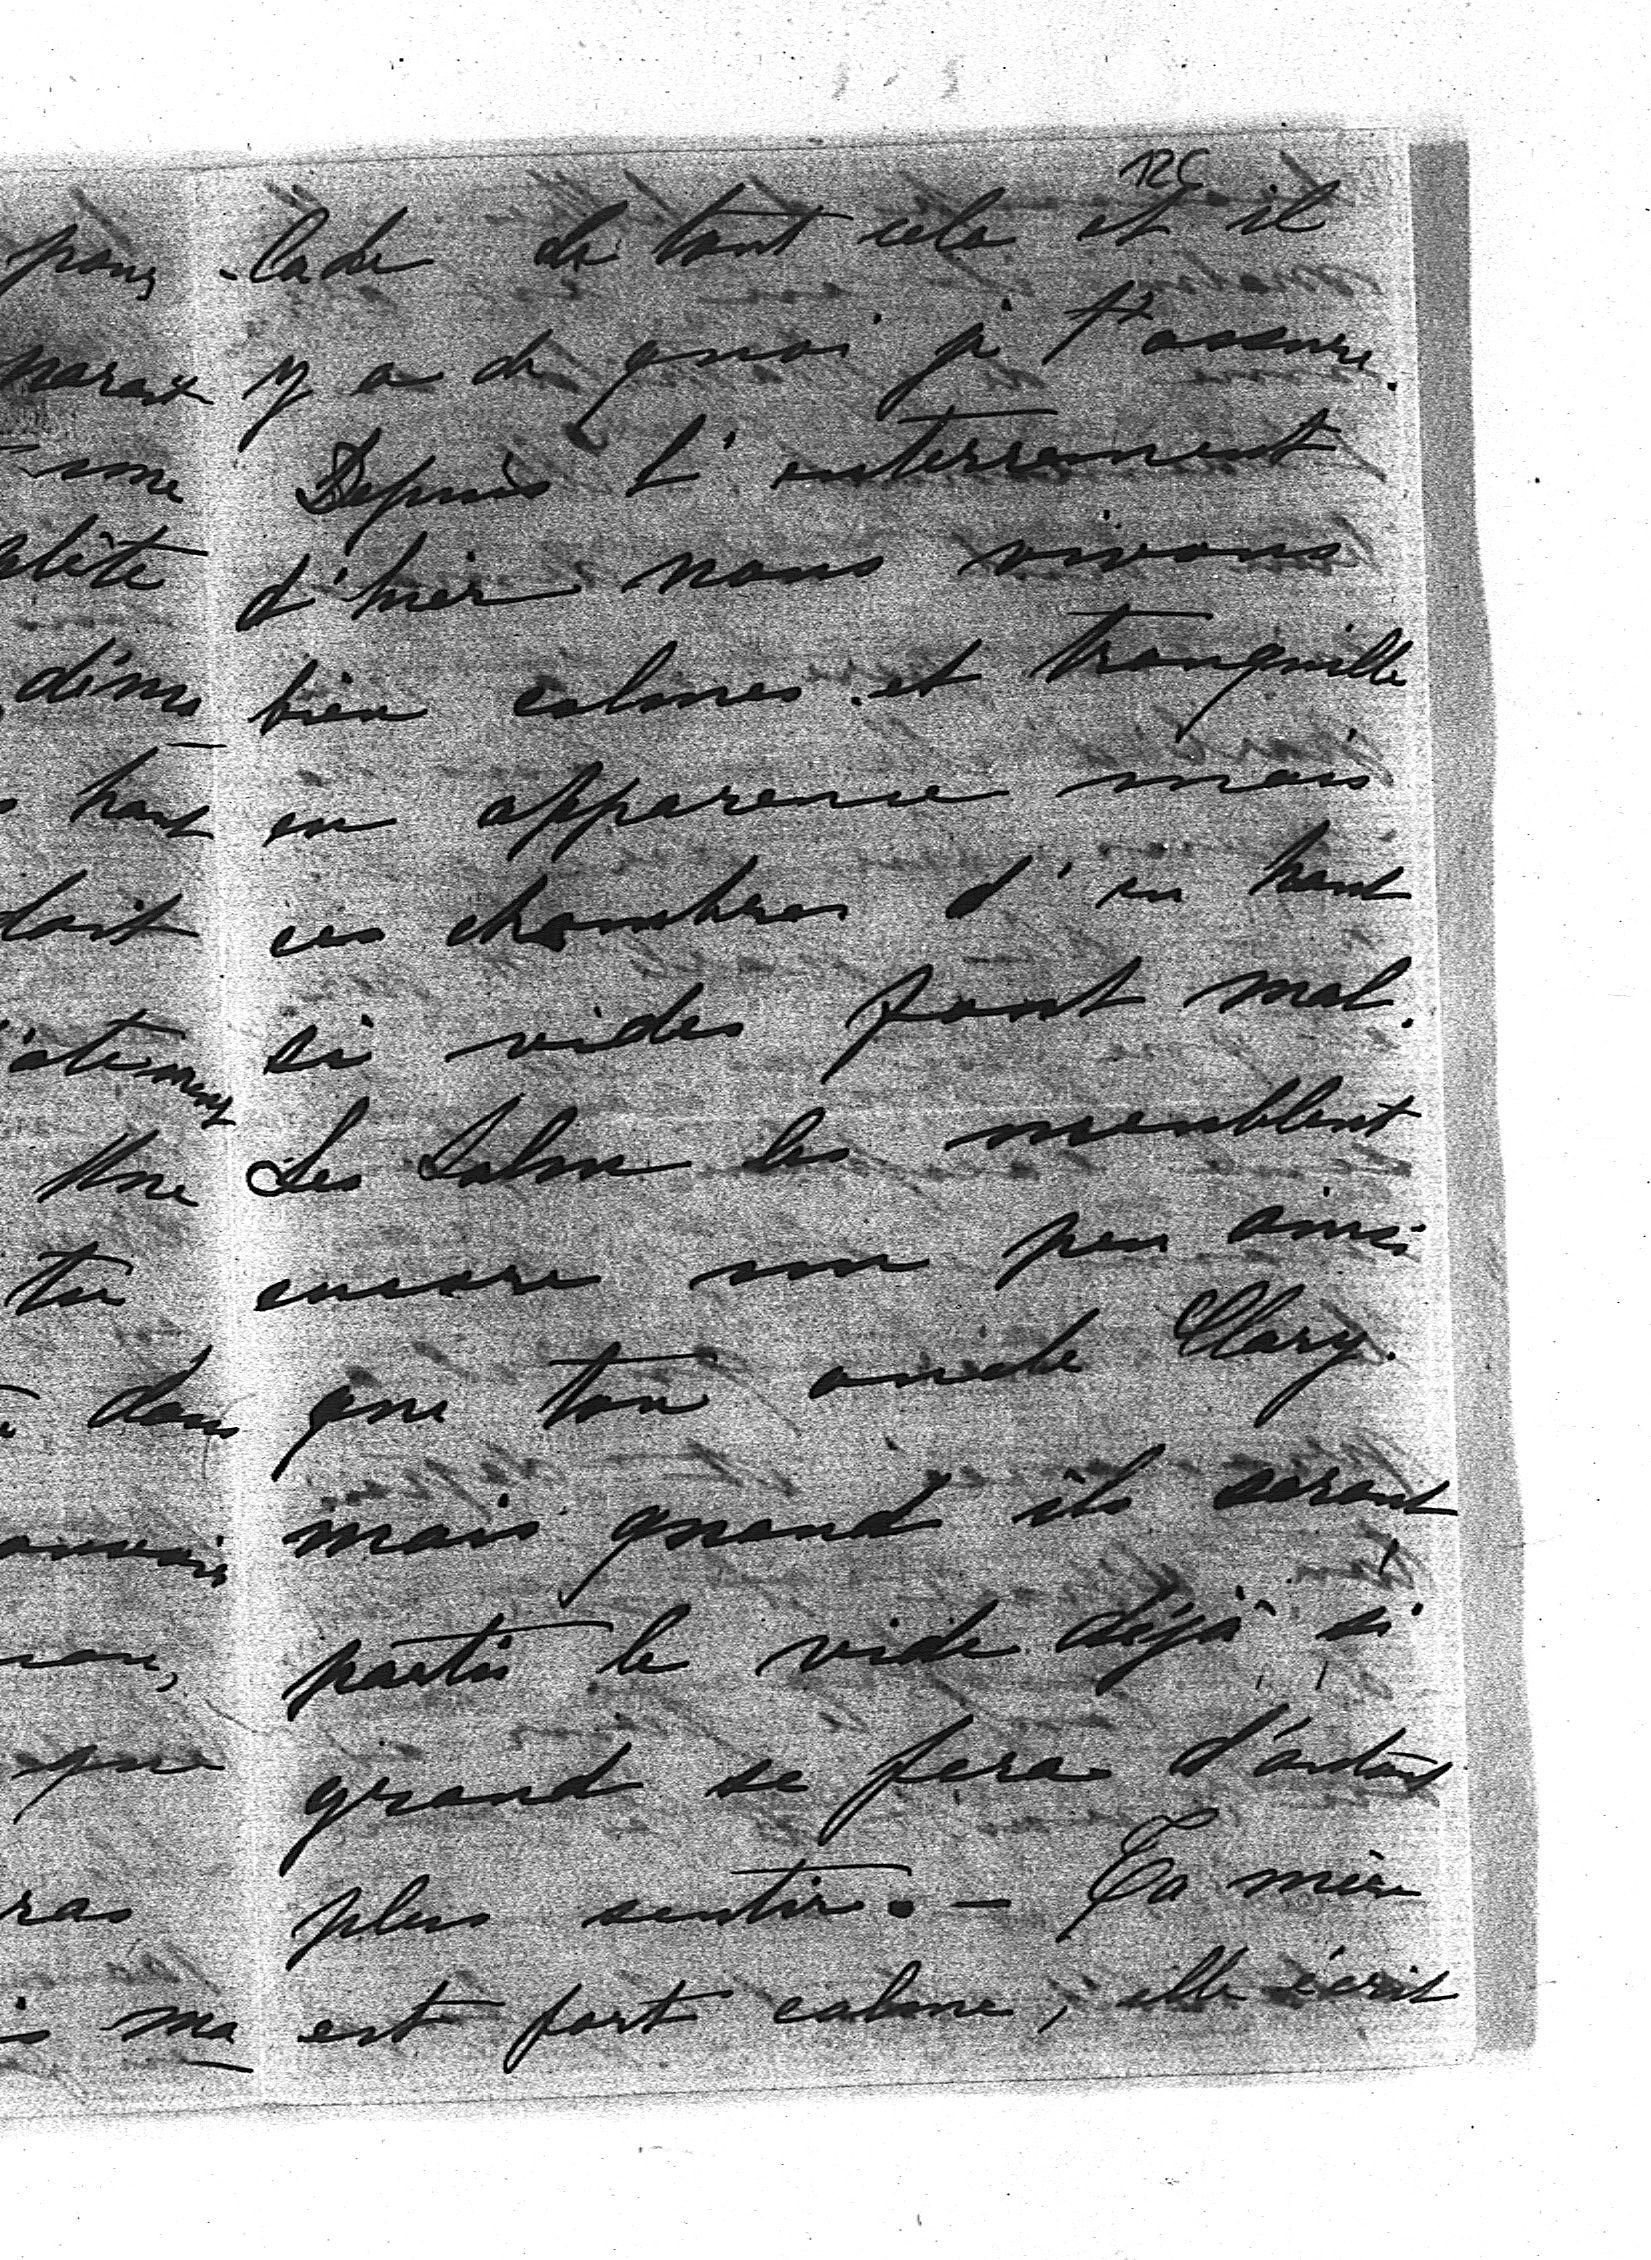 -lade de tout cela et il
y a de quoi je t'assure.
Depuis l'enterrement
d'hier nous vivons
bien calmes et tranquille
en apparence mais
ces chambres d'en haut
si vides font mal.
Les Salm les meublent
encore un peu ainsi
que ton oncle Clary.
mais quand ils seront
partis le vide déjà si
grand se fera d'autant
plus sentir. — Ta mère
est fort calme, elle écrit
haut
Une
tu
dans
que
ma